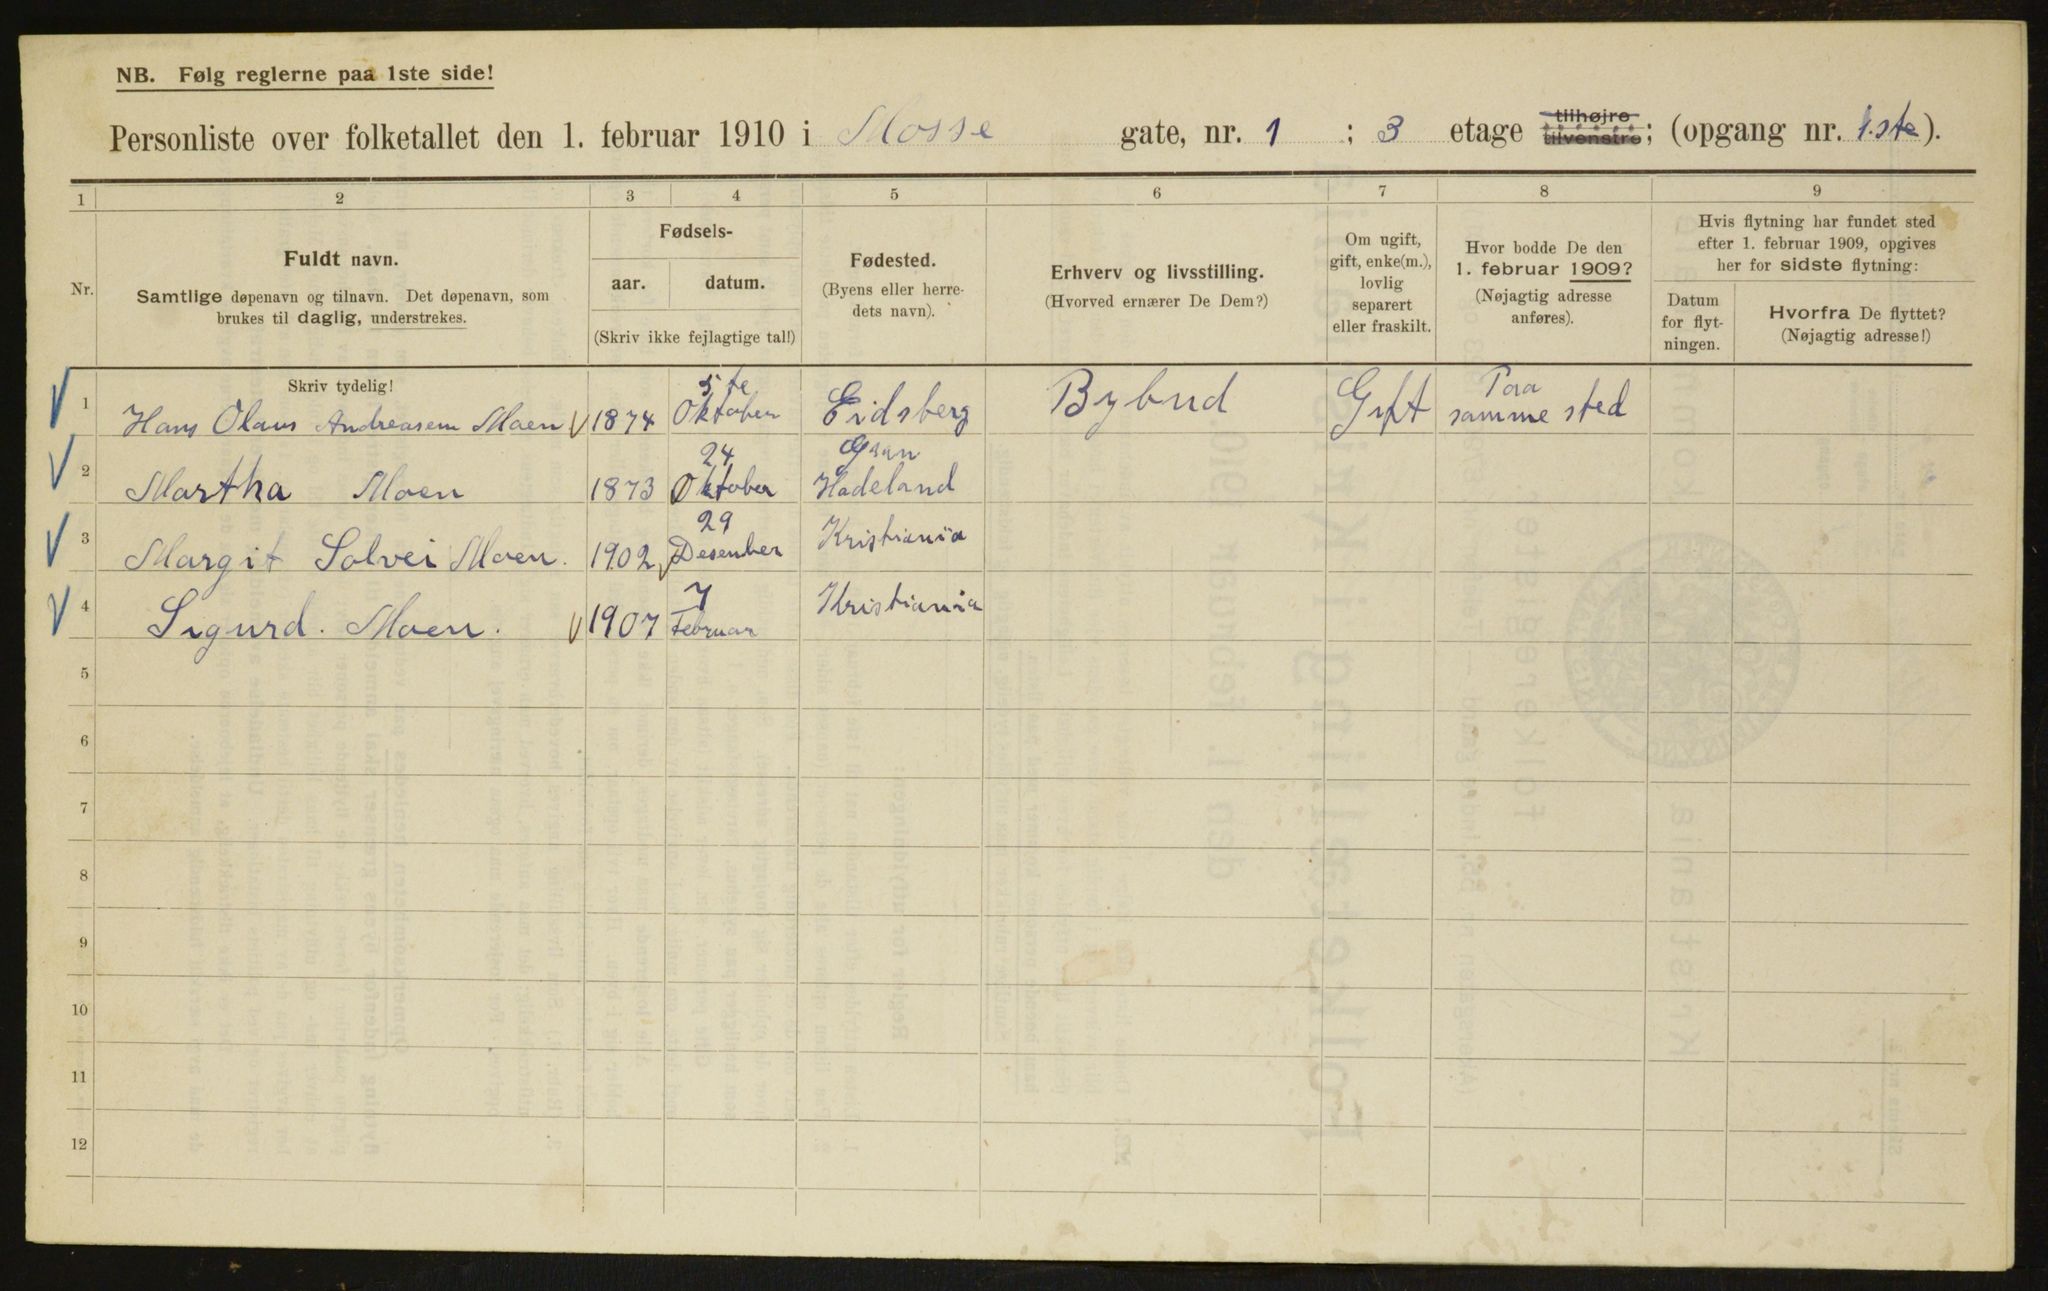 NB. Følg reglerne paa 1ste side!
Personliste over folketallet den 1. februar 1910 i Mosse gate, nr. 1 ; 3 etage tilhøjre tilvenstre; (opgang nr. 1.ste).
1 2 3 4 5 6 7 8 9
Nr.
Fuldt navn.
Samtlige døpenavn og tilnavn. Det døpenavn, som
brukes til daglig, understrekes.
Fødsels-
aar. datum.
(Skriv ikke fejlagtige tal!)
Fødested.
(Byens eller herre-
dets navn).
Erhverv og livsstilling.
(Hvorved ernærer De Dem?)
Om ugift,
gift, enke(m.),
lovlig
separert
eller fraskilt.
Hvor bodde De den
1. februar 1909?
(Nøjagtig adresse
anføres).
Hvis flytning har fundet sted
efter 1. februar 1909, opgives
her for sidste flytning:
Datum
for flyt-
ningen.
Hvorfra De flyttet?
(Nøjagtig adresse!)
Skriv tydelig!
1 Hans Olaus Andreasem Moen 1874 5te Oktober Eidsberg Bybud Gift Paa samme sted
2 Martha Moen 1873 24 Oktober Gran Hadeland
3 Margit Solvei Moen. 1902 29 Desember Kristiania
4 Sigurd. Moen. 1907 7 Februar Kristiania
5
6
7
8
9
10
11
12